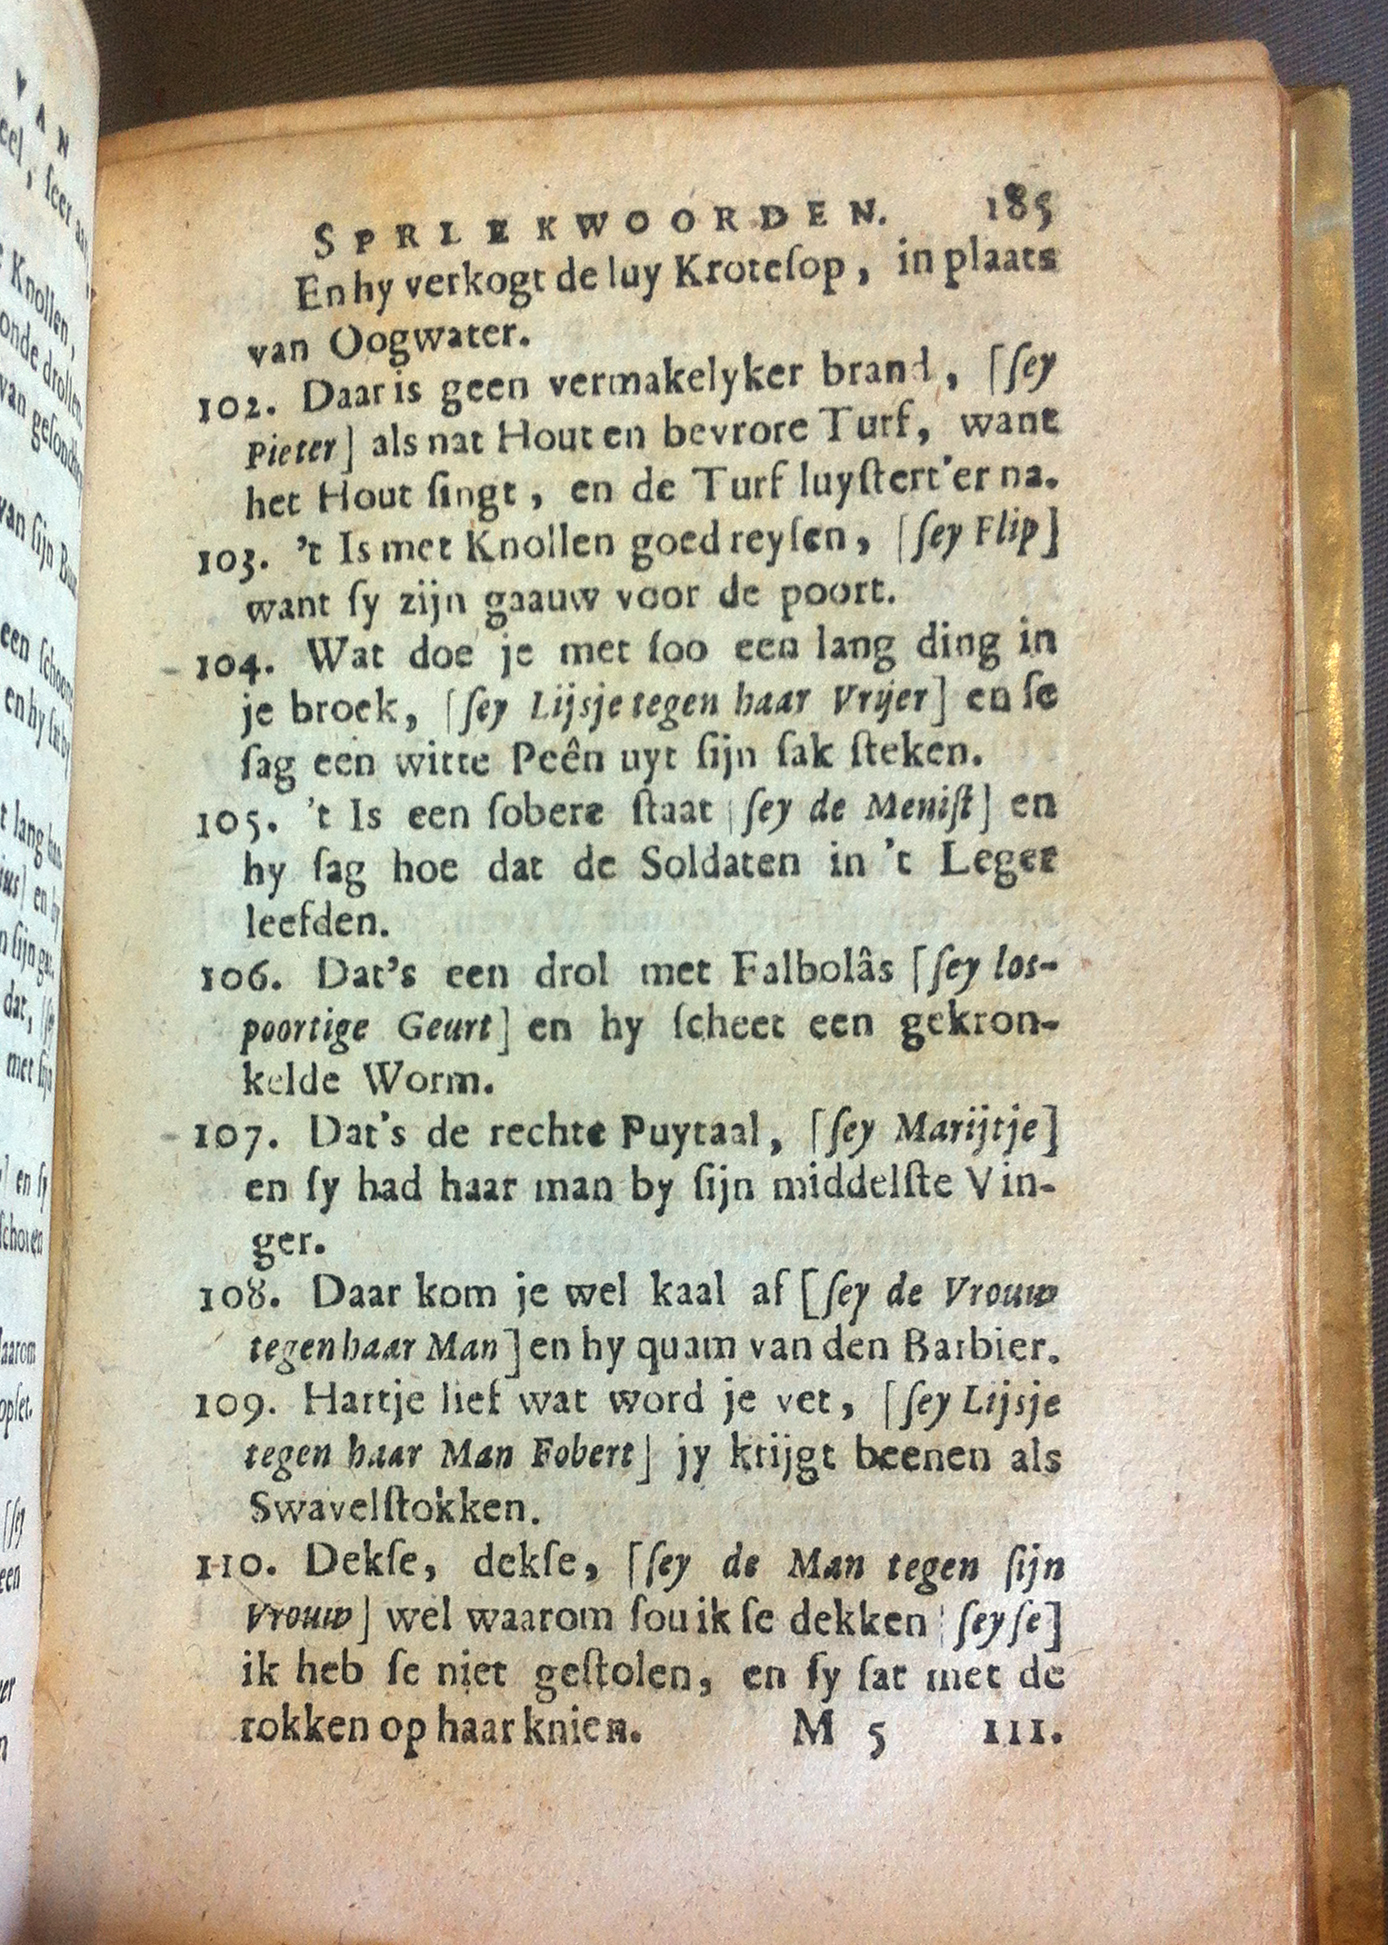 VAN
eel, ſeer aan
Knollen,
onde drollen
van geſondhey
van ſijn
een ſchoen
en hy
t lang
ius] en hy
dat, [ſey
met ſijn
en ſy
ſchoten
aarom
opſet.
[ſey
een
SPRLEKWOORDEN. 185
En hy verkogt de luy Kroteſop, in plaats
van Oogwater.
102. Daar is geen vermakelyker brand, [ſey
Pieter] als nat Hout en bevrore Turf, want
het Hout ſingt, en de Turf luyſtert'er na.
103. 't Is met Knollen goed reyſen, [ſey Flip]
want ſy zijn gaauw voor de poort.
104. Wat doe je met ſoo een lang ding in
je broek, [ſey Lijsje tegen haar Vrijer] en ſe
ſag een witte Peên uyt ſijn ſak ſteken.
105. 't Is een ſobere ſtaat [ſey de Meniſt] en
hy ſag hoe dat de Soldaten in 't Leger
leefden.
106. Dat's een drol met Falbolâs [ſey los-
poortige Geurt] en hy ſcheet een gekron-
kelde Worm.
107. Dat's de rechte Puytaal, [ſey Marijtje]
en ſy had haar man by ſijn middelſte Vin-
ger.
108. Daar kom je wel kaal af [ſey de Vrouw
tegen haar Man] en hy quam van den Barbier.
109. Hartje lief wat word je vet, [ſey Lijsje
tegen haar Man Fobert] jy krijgt beenen als
Swavelſtokken.
110. Dekſe, dekſe, [ſey de Man tegen ſijn
Vrouw] wel waarom ſou ik ſe dekken [ſey ſe]
ik heb ſe niet geſtolen, en ſy ſat met de
rokken op haar knien. M 5 111.